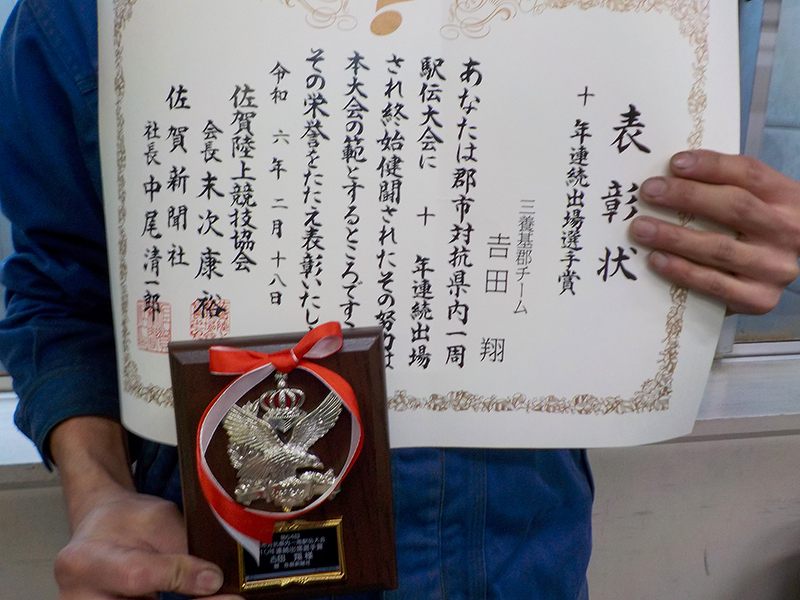 表彰状
十年連続出場選手賞
三養基郡チーム
吉田 翔
あなたは郡市対抗県内一周
駅伝大会に 十 年連続出場
され終始健闘されたその努力は
本大会の範とするところです
その栄誉をたたえ表彰いたし
令和 六 年 二 月 十八 日
佐賀陸上競技協会
会長 末次康裕
佐賀新聞社
社長 中尾清一郎
10年連続出場選手賞
吉田 翔 様